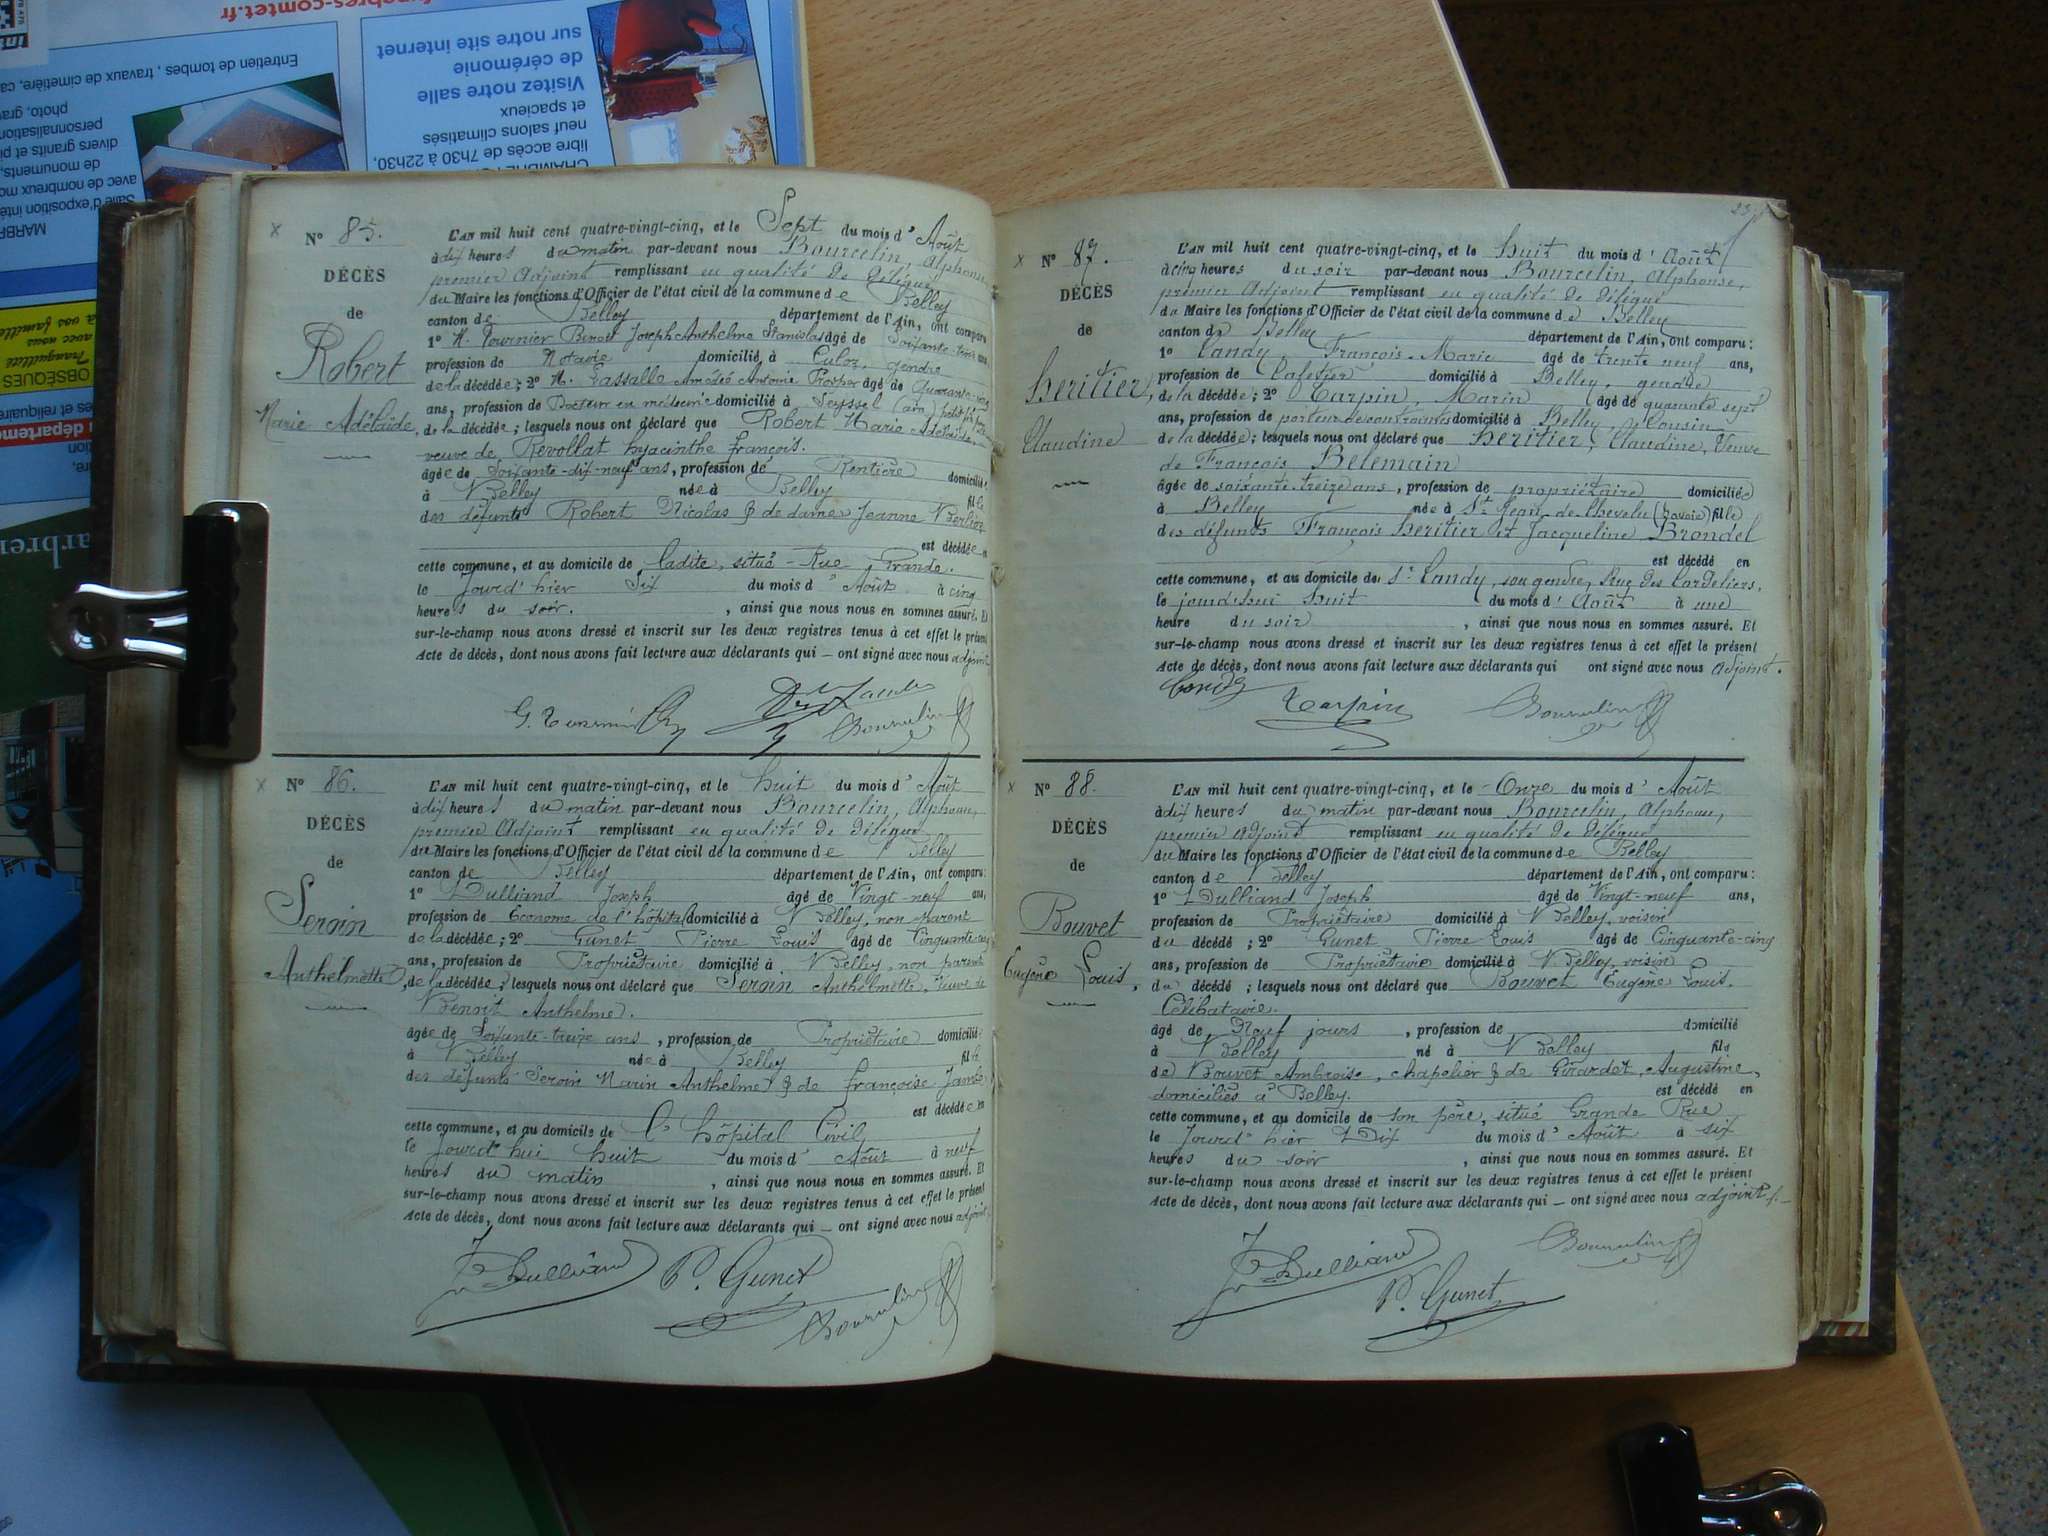 funebres-comtet.fr
Entretien de tombes, travaux de cimetière, ca
photo, gra
personnalisation
divers granits et pi
de monuments,
avec de nombreux mo
Salle d'exposition inté
MARBR
sur notre site internet
de cérémonie
Visitez notre salle
et spacieux
neuf salons climatisés
libre accès de 7h30 à 22h30,
à vos famille
avec nous
Tranquillité
OBSÈQUES
es et reliquaire
département
N° 85.
DÉCÈS
de
Robert
Marie Adélaïde
L'AN mil huit cent quatre-vingt-cinq, et le Sept du mois d'Août
à dix heures du matin par-devant nous Bourcelin, Alphonse,
premier Adjoint remplissant en qualité de délégué
du Maire les fonctions d'Officier de l'état civil de la commune de Belley
canton de Belley département de l'Ain, ont comparu
1° M. Tournier Benoit Joseph Anthelme Stanislas âgé de Soixante-trois ans
profession de Notaire domicilié à Culoz, gendre
de la décédée ; 2° M. Lassalle Amédée Antoine Prosper âgé de Quarante
ans, profession de Docteur en médecine domicilié à Seyssel (ain) petit
de la décédée ; lesquels nous ont déclaré que Robert Marie Adélaïde,
veuve de Revollat hyacinthe françois.
âgée de Soixante-dix-neuf ans, profession de Rentière domiciliée
à Belley née à Belley fille
des défunts Robert Nicolas & de dame Jeanne Berlioz
est décédée en
cette commune, et au domicile de ladite, situé - Rue Grande.
le jourd'hier Six du mois d'Août à cinq
heures du soir. , ainsi que nous nous en sommes assuré. Et
sur-le-champ nous avons dressé et inscrit sur les deux registres tenus à cet effet le présent
Acte de décès, dont nous avons fait lecture aux déclarants qui — ont signé avec nous adjoint
Bourcelin
N° 86.
DÉCÈS
de
Seroin
Anthelmette
L'AN mil huit cent quatre-vingt-cinq, et le huit du mois d'Août
à dix heures du matin par-devant nous Bourcelin, Alphonse,
premier Adjoint remplissant en qualité de délégué
du Maire les fonctions d'Officier de l'état civil de la commune de Belley
canton de Belley département de l'Ain, ont comparu:
1° Dulliand Joseph âgé de Vingt-neuf ans,
profession de Econome de l'hôpital domicilié à Belley, non parent
de la décédée ; 2° Gunet Pierre Louis âgé de Cinquante-cinq
ans, profession de Propriétaire domicilié à Belley, non parent
de la décédée ; lesquels nous ont déclaré que Seroin Anthelmette, veuve de
Benoit Anthelme.
âgée de Soixante-treize ans , profession de Propriétaire domiciliée
à Belley née à Belley fille
des défunts Seroin Marin Anthelme & de françoise Jambe
est décédée en
cette commune, et au domicile de l'hôpital Civil
le jourd'hui huit du mois d' Août à neuf
heures du matin , ainsi que nous nous en sommes assuré. Et
sur-le-champ nous avons dressé et inscrit sur les deux registres tenus à cet effet le présent
Acte de décès, dont nous avons fait lecture aux déclarants qui — ont signé avec nous adjoint.
J. Dulliand P. Gunet
Bourcelin
N° 87.
DÉCÈS
de
heritier,
Claudine
L'AN mil huit cent quatre-vingt-cinq, et le huit du mois d'Août
à cinq heures du soir par-devant nous Bourcelin, Alphonse,
premier Adjoint remplissant en qualité de délégué
du Maire les fonctions d'Officier de l'état civil de la commune de Belley
canton de Belley département de l'Ain, ont comparu :
1° Candy François-Marie âgé de trente neuf ans,
profession de Cafetier domicilié à Belley, gendre
de la décédée ; 2° Carpin, Marin âgé de quarante sept
ans, profession de porteur de contraintes domicilié à Belley, Cousin
de la décédée ; lesquels nous ont déclaré que heritier, Claudine, Veuve
de François Belemain
âgée de soixante treize ans , profession de propriétaire domiciliée
à Belley née à St Jean de Chevelu (Savoie) fille
des défunts François heritier et Jacqueline Brondel
est décédé en
cette commune, et au domicile de St Candy, son gendre, Rue des Cordeliers,
le jourd'hui huit du mois d' Août à une
heure du soir , ainsi que nous nous en sommes assuré. Et
sur-le-champ nous avons dressé et inscrit sur les deux registres tenus à cet effet le présent
Acte de décès, dont nous avons fait lecture aux déclarants qui ont signé avec nous adjoint.
Candy Carpin Bourcelin
N° 88.
DÉCÈS
de
Bouvet
Eugène Louis,
L'AN mil huit cent quatre-vingt-cinq, et le Onze du mois d' Août
à dix heures du matin par-devant nous Bourcelin, Alphonse,
premier adjoint remplissant en qualité de délégué
du Maire les fonctions d'Officier de l'état civil de la commune de Belley
canton de Belley département de l'Ain, ont comparu :
1° Dulliand Joseph âgé de Vingt-neuf ans,
profession de Propriétaire domicilié à Belley, voisin
du décédé ; 2° Gunet Pierre Louis âgé de Cinquante-cinq
ans, profession de Propriétaire domicilié à Belley, voisin
du décédé ; lesquels nous ont déclaré que Bouvet Eugène Louis.
Célibataire.
âgé de Neuf jours , profession de domicilié
à Belley né à Belley fils
de Bouvet Ambroise, chapelier & de Girardet, Augustine,
domiciliés à Belley. est décédé en
cette commune, et au domicile de son père, situé Grande Rue
le jourd'hier Dix du mois d' Août à six
heures du soir , ainsi que nous nous en sommes assuré. Et
sur-le-champ nous avons dressé et inscrit sur les deux registres tenus à cet effet le présent
Acte de décès, dont nous avons fait lecture aux déclarants qui — ont signé avec nous adjoint.
J. Dulliand Bourcelin
P. Gunet